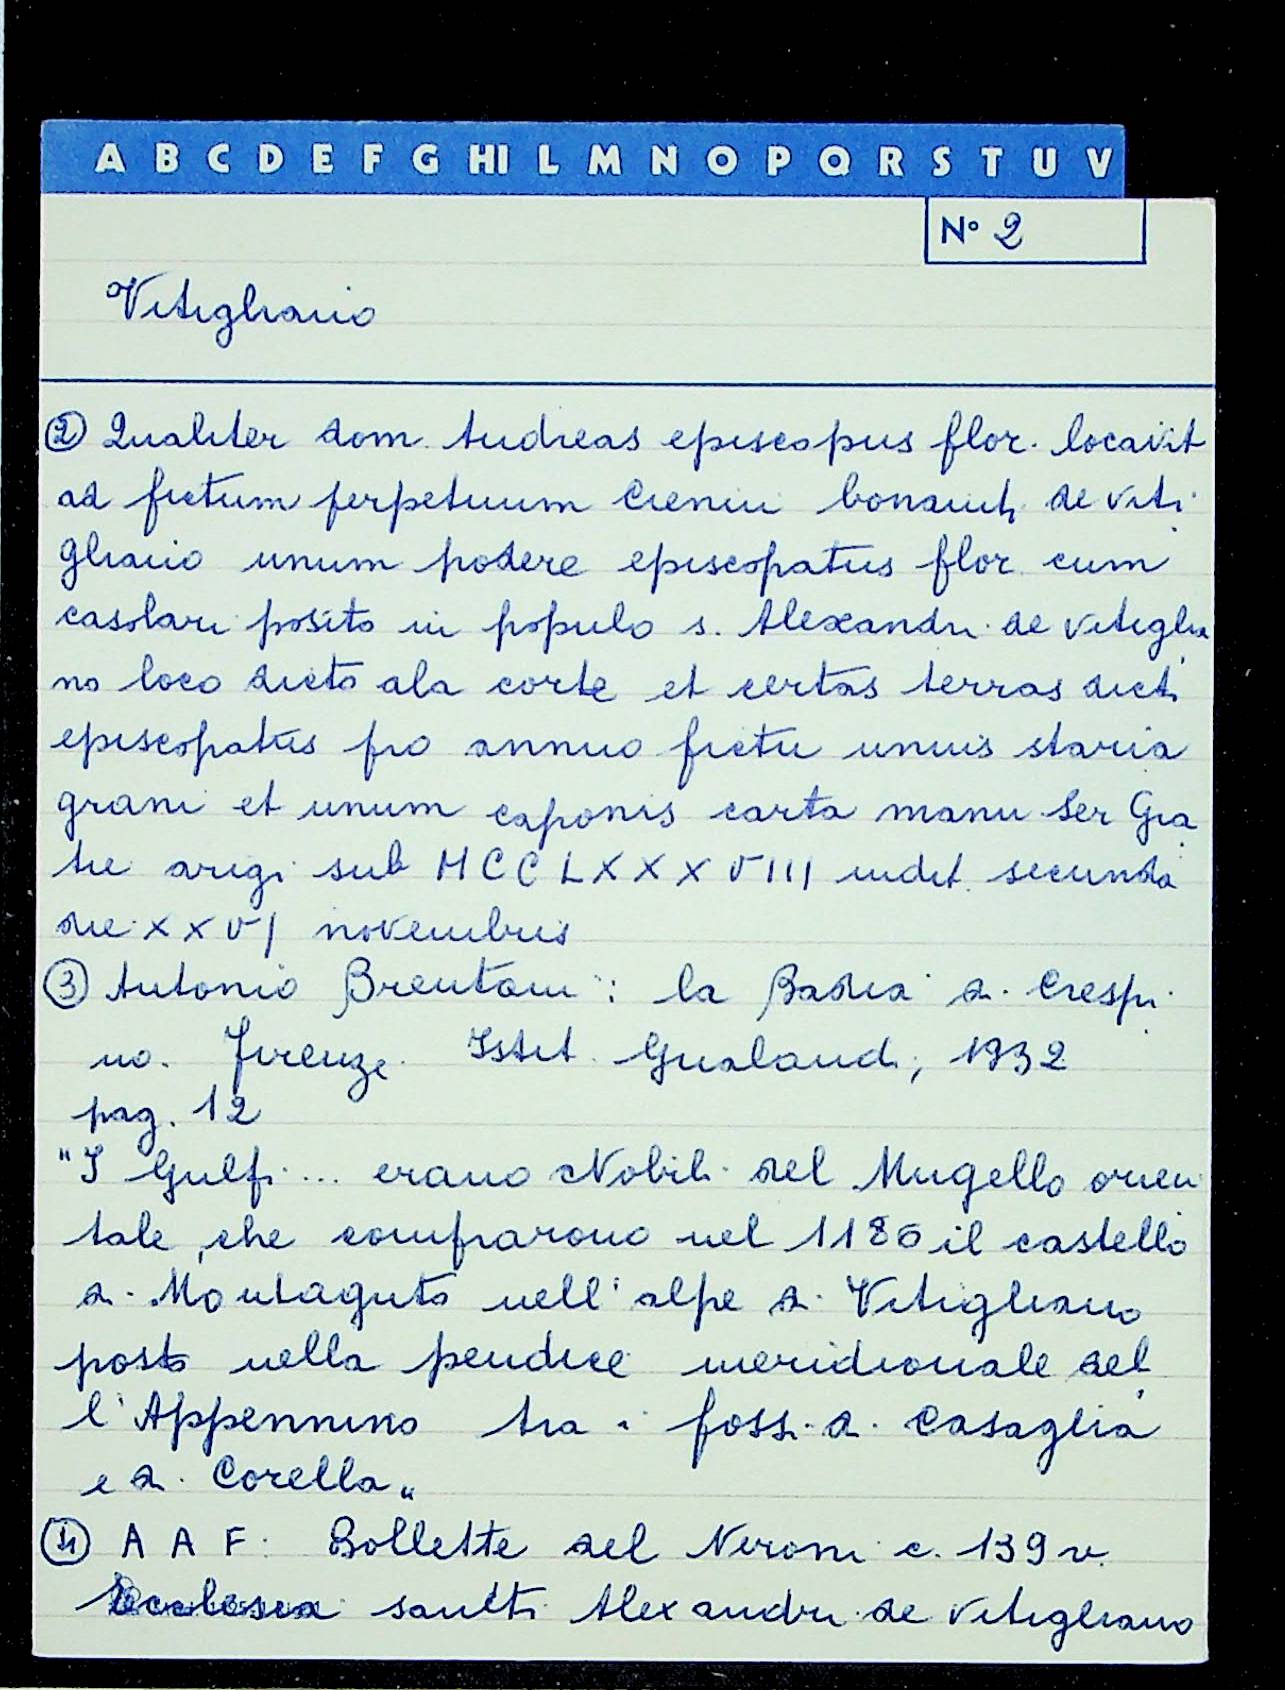 A B C D E F G HI L M N O P Q R S T U V
N° 2
Vitigliano
② Qualiter dom. Andreas episcopus flor. locavit
ad fictum perpetuum Cienni bonaiuti de viti
gliano unum podere episcopatus flor. cum
casolari posito in populo s. Alexandri de vitiglia
no loco dicto ala corte et certas terras dicti
episcopatus pro annuo fictu unius staria
grani et unum caponis carta manu Ser Gra
tie arigi sub MCCLXXXVIII indit. secunda
die XXVI novembris
③ Antonio Brentani: la Badia di Crespi
no. Firenze. Istit. Gualandi, 1932
pag. 12
"I Gulfi ... erano Nobili del Mugello orien
tale, che comprarono nel 1186 il castello
di Montaguto nell'alpe di Vitigliano
posto nella pendice meridionale del
l'Appennino tra i fossi di Casaglia
e di Corella"
④ A A F: Bollette del Neroni c. 139 v.
Ecclesia sancti Alexandri de Vitigliano